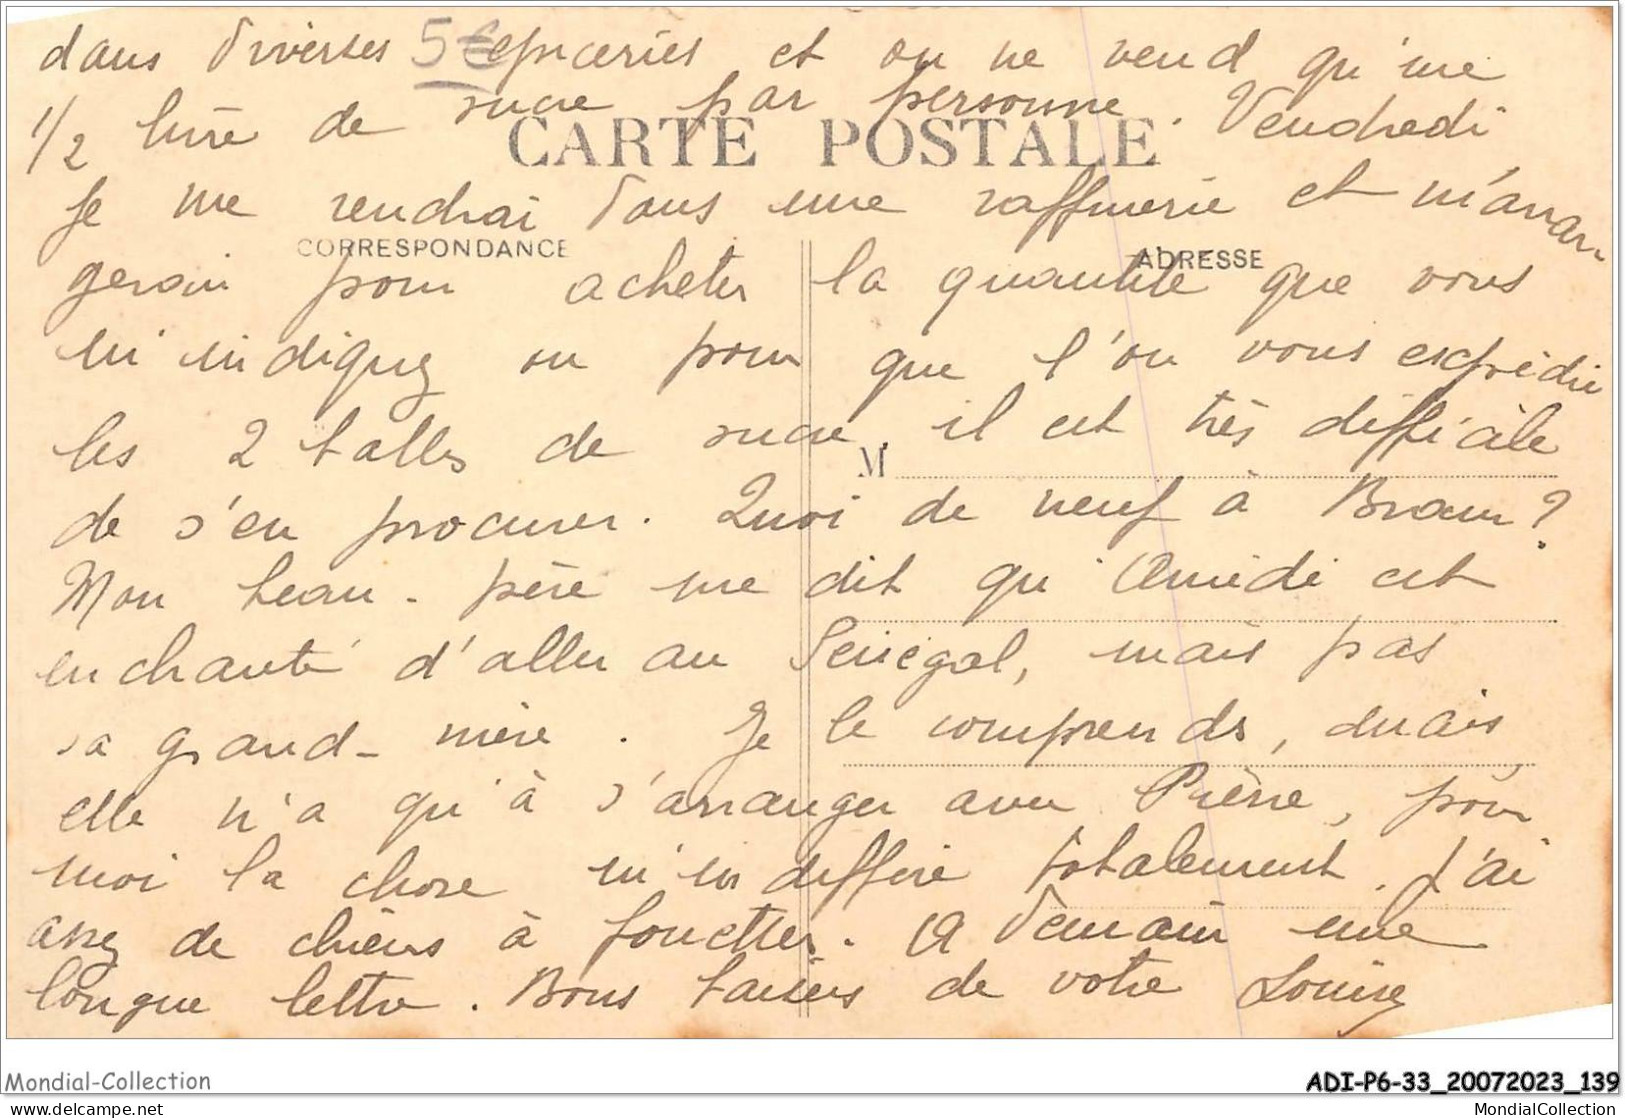 dans diverses 5€ épiceries et on ne vend qu'une
1/2 livre de sucre par personne. Vendredi
CARTE POSTALE
je me rendrai dans une raffinerie et m'arran-
CORRESPONDANCE
ADRESSE
gerai pour acheter la quantité que vous
m'indiquez ou pour que l'on vous expédie
les 2 balles de sucre, il est très difficile
M
de s'en procurer. Quoi de neuf à Bram ?
Mon beau-père me dit qu'Amédé est
enchanté d'aller au Sénégal, mais pas
sa grand-mère. Je le comprends, mais
elle n'a qu'à s'arranger avec Pierre, pour
moi la chose m'indiffère totalement. J'ai
assez de chiens à fouetter. A demain une
longue lettre. Bons baisers de votre Louise
Mondial-Collection
ADI-P6-33_20072023_139
delcampe.net
MondialCollection